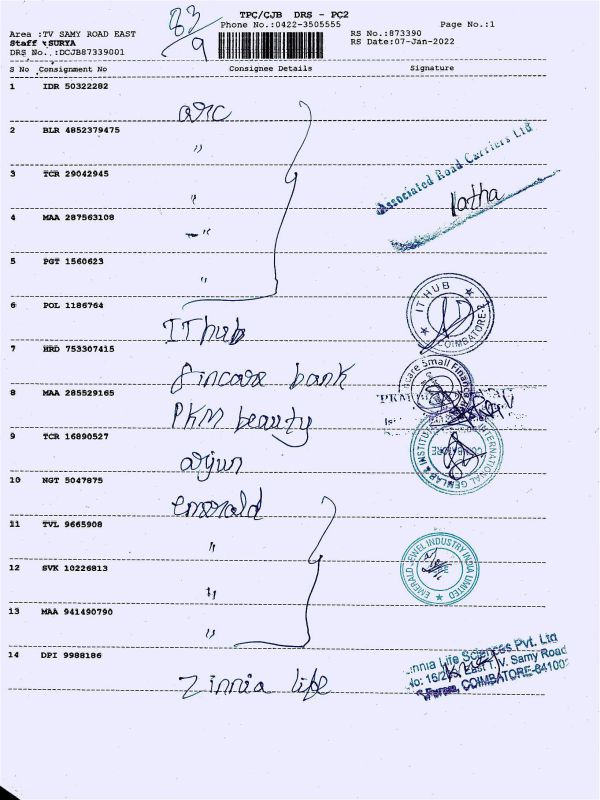 83/9
TPC/CJB DRS - PC2
Phone No.:0422-3505555
Page No.:1
Area :TV SAMY ROAD EAST
RS No.:873390
Staff :SURYA
RS Date:07-Jan-2022
DRS No.:DCJB87339001
S No Consignment No Consignee Details Signature
1 IDR 50322282
arc
2 BLR 4852379475
"
Associated Road Carriers Ltd
3 TCR 29042945
latha
"
4 MAA 287563108
"
5 PGT 1560623
"
6 POL 1186764
IT HUB
COIMBATORE
IT hub
7 HRD 753307415
care Small Finance
fincare bank
8 MAA 285529165
PKM beauty
9 TCR 16890527
INTERNATIONAL GEMLAB & INSTITUTE
COIMBATORE
arjun
10 NGT 5047875
emerald
11 TVL 9665908
"
EMERALD JEWEL INDUSTRY INDIA LIMITED
12 SVK 10226813
"
13 MAA 941490790
"
14 DPI 9988186
Zinnia life
innia Life Sciences Pvt. Ltd
No: 16/2 East T.V. Samy Road
COIMBATORE-64100